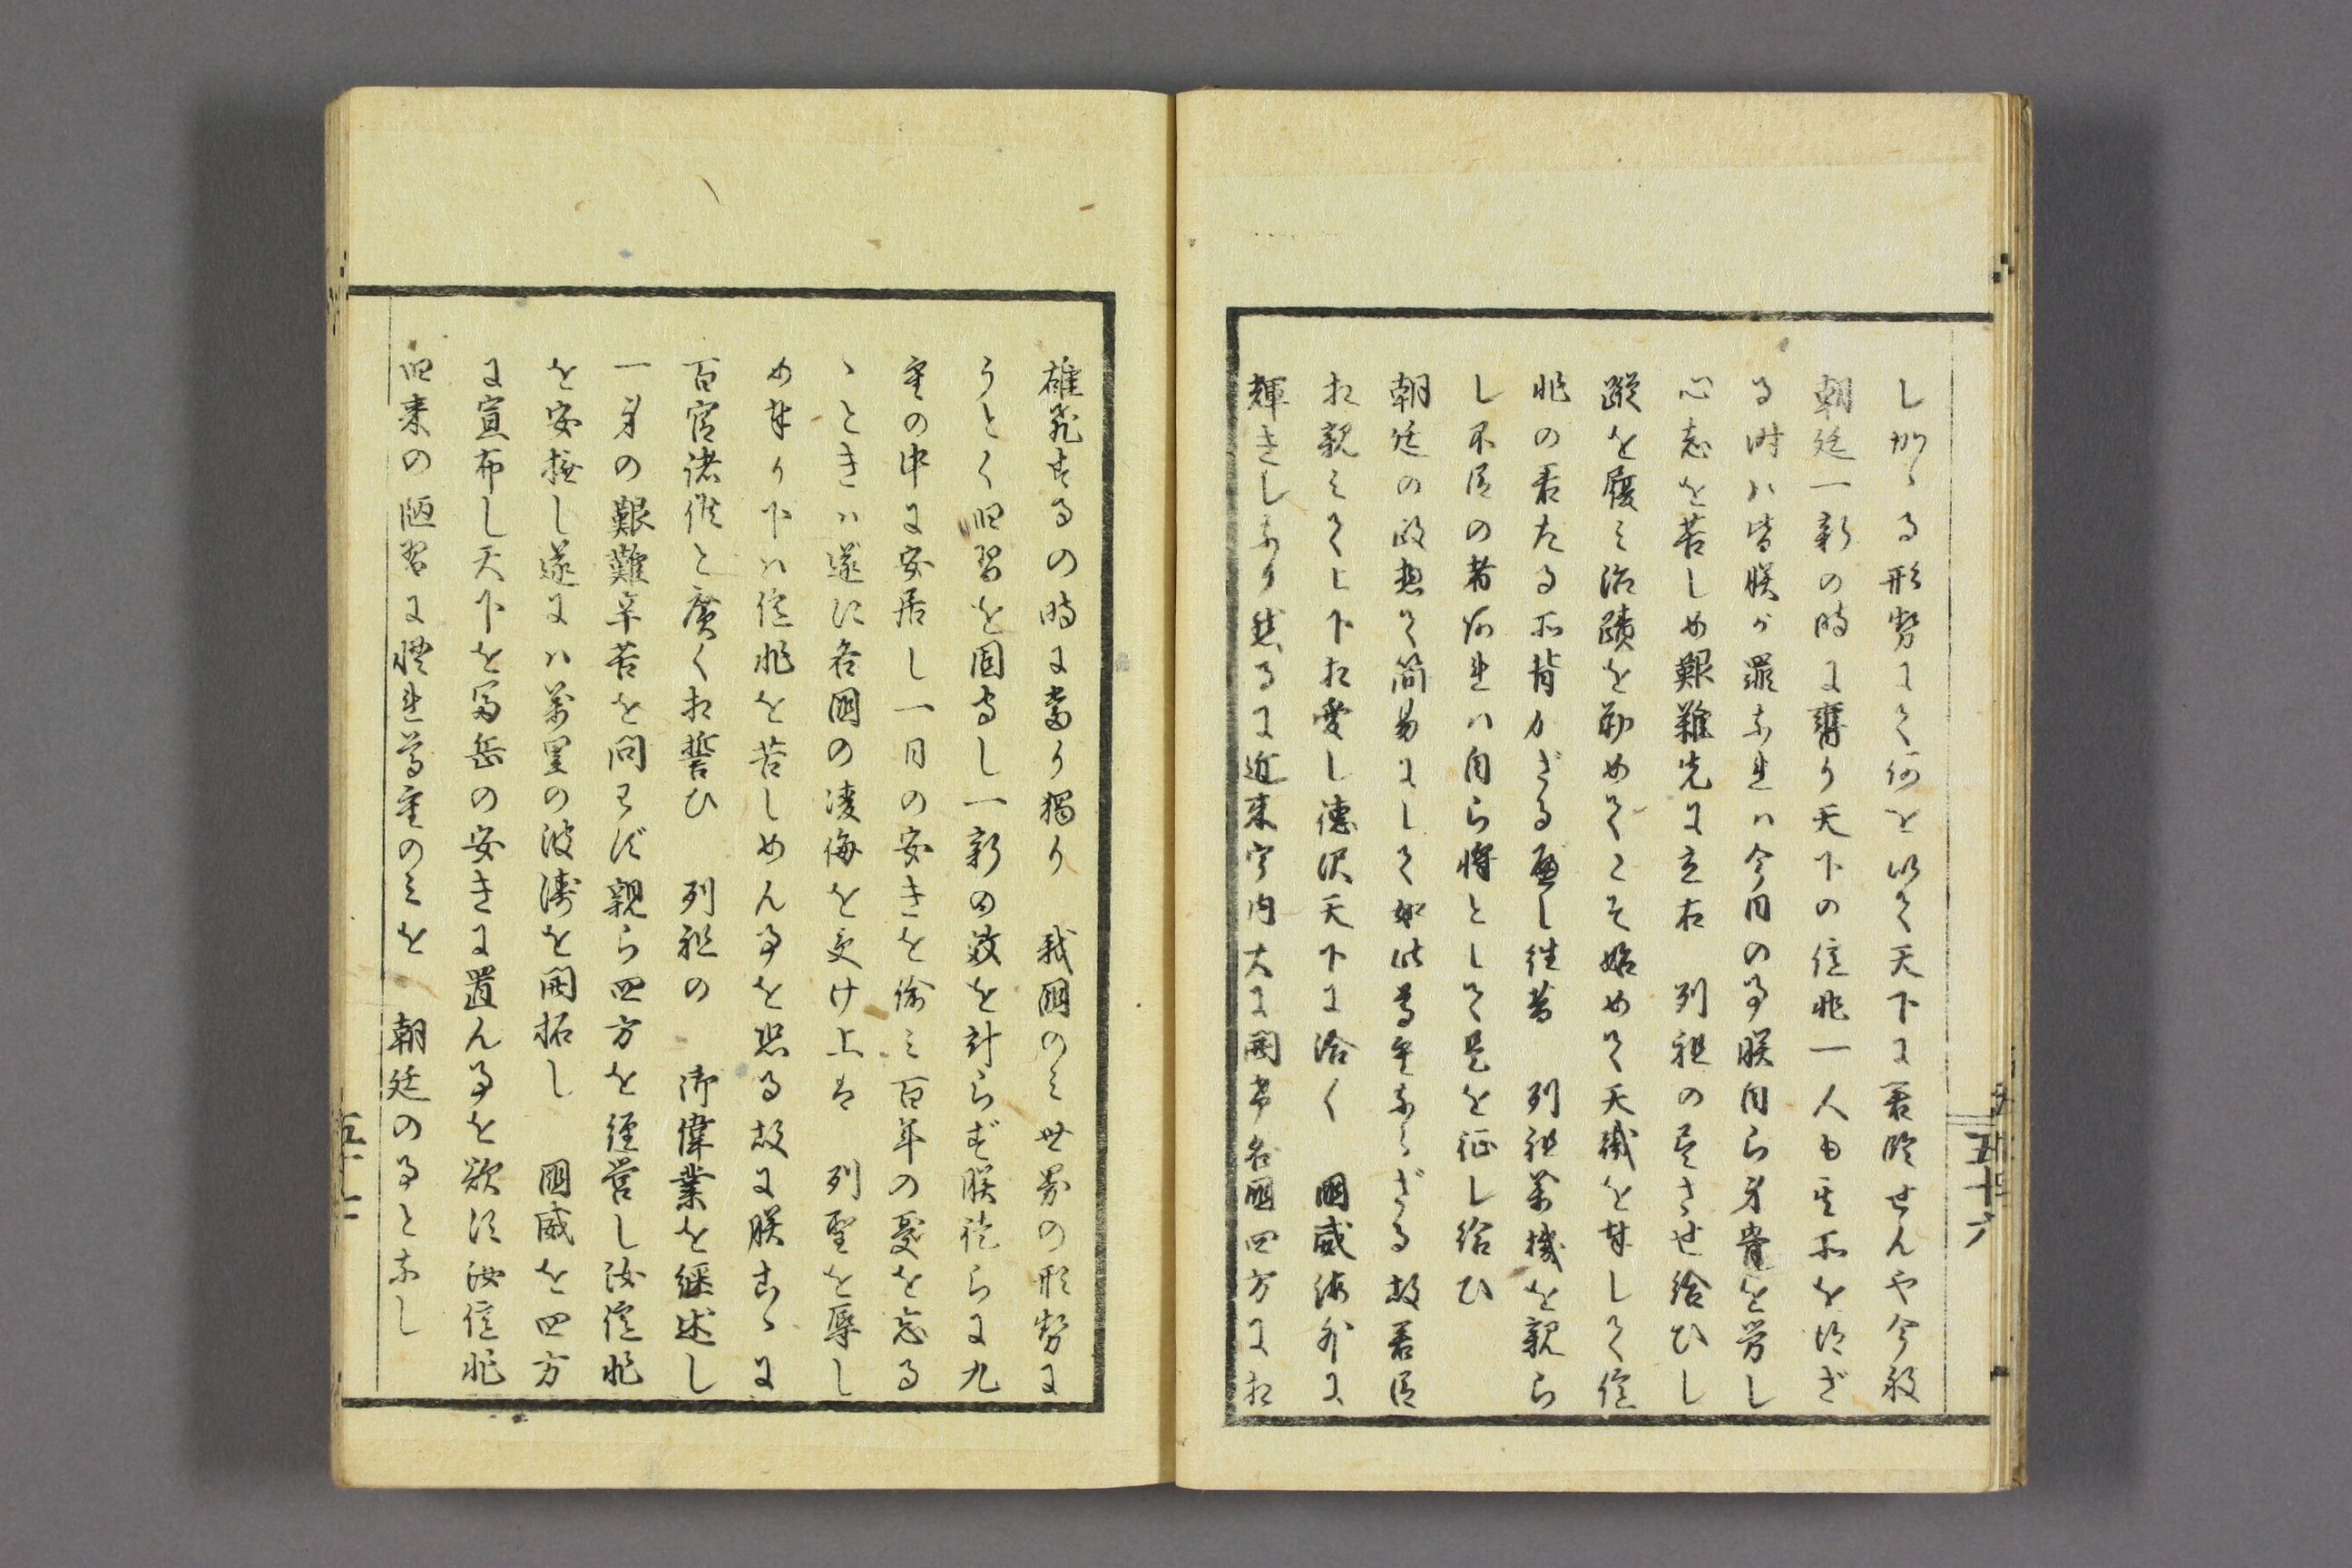 しかゝる形勢にて何を以て天下に君臨せんや今般
朝廷一新の時に膺り天下の億兆一人も其所を得ざ
る時ハ皆朕が罪なれハ今日の事朕自ら身骨を労し
心志を苦しめ艱難先に立古　列祖の尽させ給ひし
蹤を履ミ治蹟を勤めてこそ始めて天職を奉して億
兆の君たる所に背かざるべし往昔　列祖萬機を親ら
し不臣の者あれハ自ら将として是を征し給ひ
朝廷の政惣て簡易にして如此尊重ならざる故君臣
相親ミて上下相愛し徳沢天下に洽く　國威海外に
輝きしなり然るに近来宇内大に開け各國四方に相
五十六
雄飛するの時に當り獨り　我國のミ世界の形勢に
うとく旧習を固守し一新の效を計らず朕徒らに九
重の中に安居し一日の安きを偸ミ百年の憂を忘る
ゝときハ遂に各國の凌侮を受け上は　列聖を辱し
め奉り下ハ億兆を苦しめん事を恐る故に朕こゝに
百官諸侯と廣く相誓ひ　列祖の　御偉業を継述し
一身の艱難辛苦を問わず親ら四方を経営し汝億兆
を安撫し遂にハ萬里の波濤を開拓し　國威を四方
に宣布し天下を冨岳の安きに置ん事を欲す汝億兆
旧来の陋習に慣れ尊重のミを　朝廷の事となし